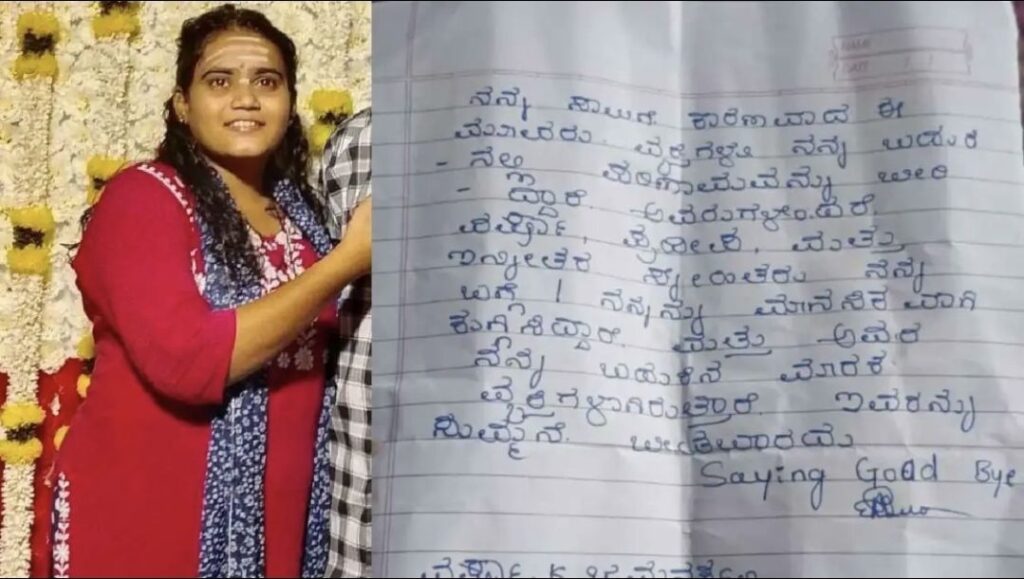 ನನ್ನ ಸಾವಿಗೆ ಕಾರಣವಾದ ಈ
ಮೂವರು. ವ್ಯಕ್ತಿಗಳು ನನ್ನ ಬದುಕಿ
- ನಲ್ಲಿ ಪರಿಣಾಮವನ್ನು ಬೀರಿ
- ದ್ದಾರೆ. ಅವರುಗಳೆಂದರೆ
ಪ್ರದೀಪ, ಮತ್ತು
ಇನ್ನೀತರ ಸ್ನೇಹಿತರು ನನ್ನ
ಬಗ್ಗೆ / ನನ್ನನ್ನು ಮಾನಸಿಕವಾಗಿ
ಕುಗ್ಗಿಸಿದ್ದಾರೆ. ಮತ್ತು ಅವರ
ನನ್ನ ಬದುಕಿನ ಮಾರಕ
ವ್ಯಕ್ತಿಗಳಾಗಿರುತ್ತಾರೆ. ಇವರನ್ನು
ಸುಮ್ಮನೆ. ಬಿಡಬಾರದು
Saying Good Bye